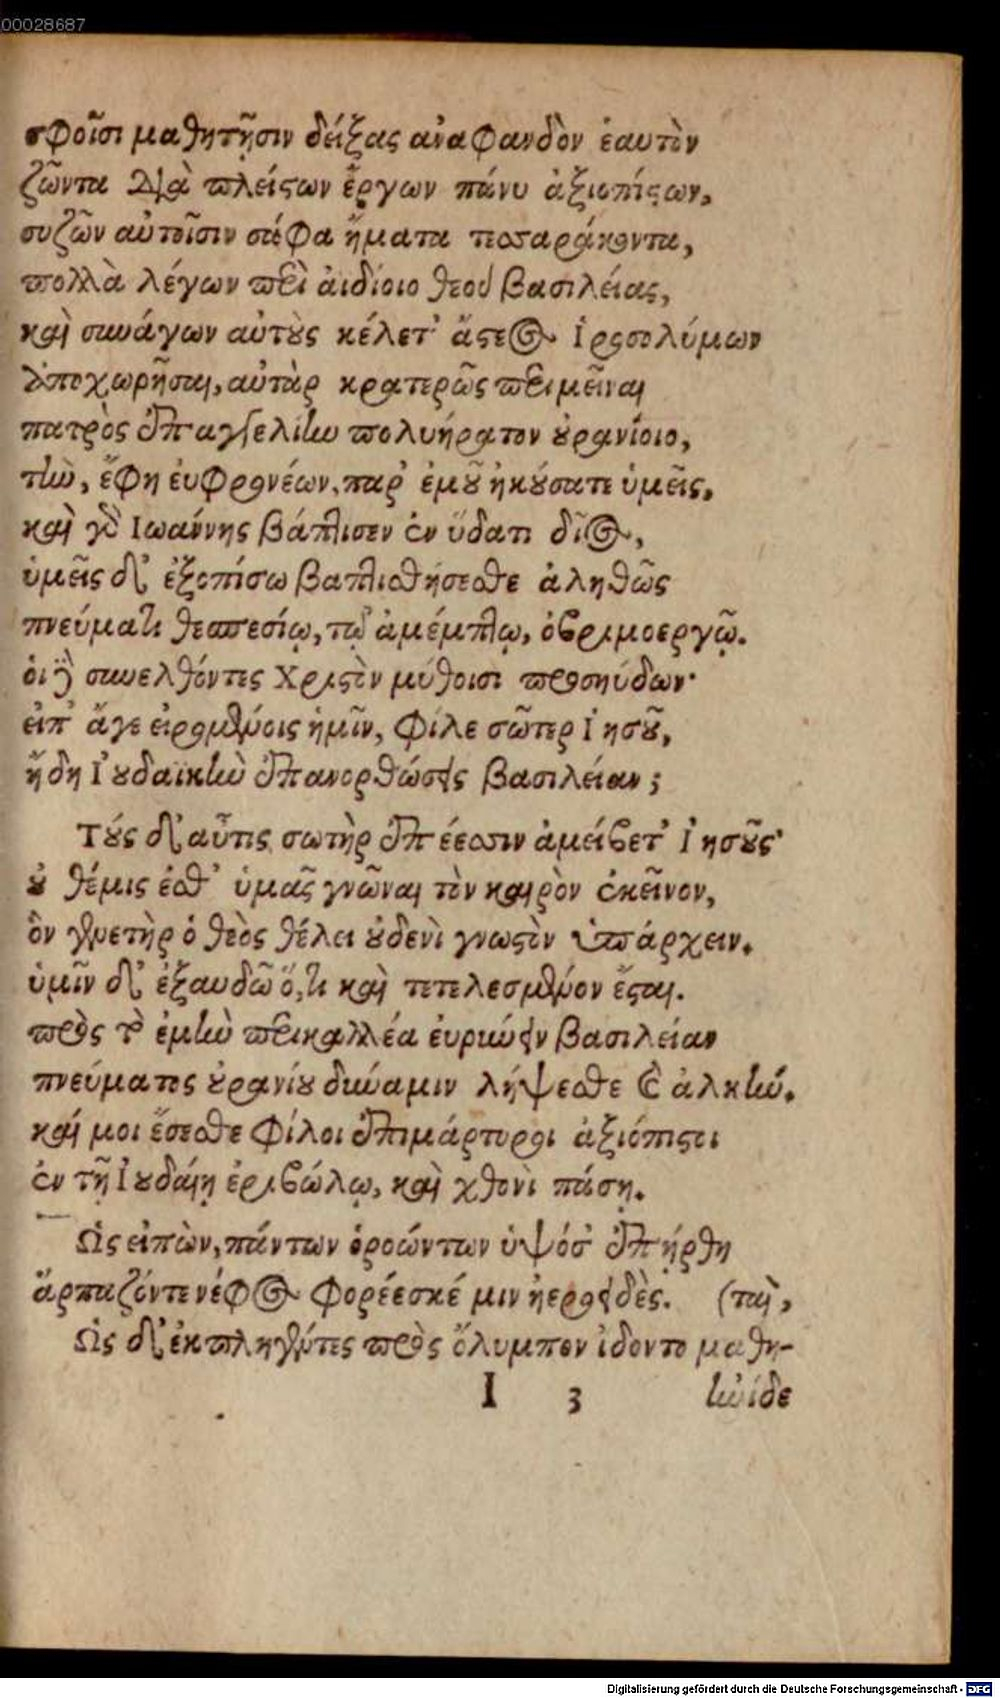 00028687
σφοῖσι μαθητῇσιν δείξας ἀναφανδὸν ἑαυτὸν
ζῶντα διὰ πλείστων ἔργων πάνυ ἀξιοπίστων,
συζῶν αὐτοῖσιν σάφα ἤματα τεσσαράκοντα,
πολλὰ λέγων περὶ ἀιδίοιο θεοῦ βασιλείας,
καὶ συνάγων αὐτοὺς κέλετ' ἄστεος Ἱροσολύμων
ἀποχωρῆσαι, αὐτὰρ κρατερῶς περιμεῖναι
πατρὸς ἐπαγγελίην πολυήρατον οὐρανίοιο,
τὴν, ἔφη ἐυφρονέων, παρ' ἐμοῦ ἠκούσατε ὑμεῖς.
καὶ γὰρ Ἰωάννης βάπτισεν ἐν ὕδατι δῖος,
ὑμεῖς δ' ἐξοπίσω βαπτισθήσεσθε ἀληθῶς
πνεύματι θεσπεσίῳ, τῷ ἀμέμπτῳ, ὀβριμοεργῷ.
οἱ δὲ συνελθόντες Χριστὸν μύθοισι προσηύδων·
εἰπ' ἄγε εἰρομένοις ἡμῖν, φίλε σῶτερ Ἰησοῦ,
ἤδη Ἰουδαϊκὴν ἐπανορθώσεις βασιλείαν;
Τοὺς δ' αὖτις σωτὴρ ἐπέεσσιν ἀμείβετ' Ἰησοῦς·
οὐ θέμις ἐσθ' ὑμᾶς γνῶναι τὸν καιρὸν ἐκεῖνον,
ὃν γενετὴρ ὁ θεὸς θέλει οὐδενὶ γνωστὸν ὑπάρχειν.
ὑμῖν δ' ἐξαυδῶ ὅ,τι καὶ τετελεσμένον ἔσται.
πρὸς τὸ ἐμὴν περικαλλέα εὐρύνειν βασιλείαν
πνεύματος οὐρανίου δύναμιν λήψεσθε καὶ ἀλκήν.
καί μοι ἔσεσθε φίλοι ἐπιμάρτυροι ἀξιόπιστοι
ἐν τῇ Ἰουδαίῃ ἐριβώλῳ, καὶ χθονὶ πάσῃ.
Ὣς εἰπὼν, πάντων ὁροώντων ὑψόσ' ἐπήρθη
ἅρπαζόν τε νέφος φορέεσκέ μιν ἠεροειδές. (ταὶ,
Ὣς δ' ἐκπληγέντες πρὸς ὄλυμπον ἰδοντο μαθη-
I 3 ἠνίδε
Digitalisierung gefördert durch die Deutsche Forschungsgemeinschaft - DFG